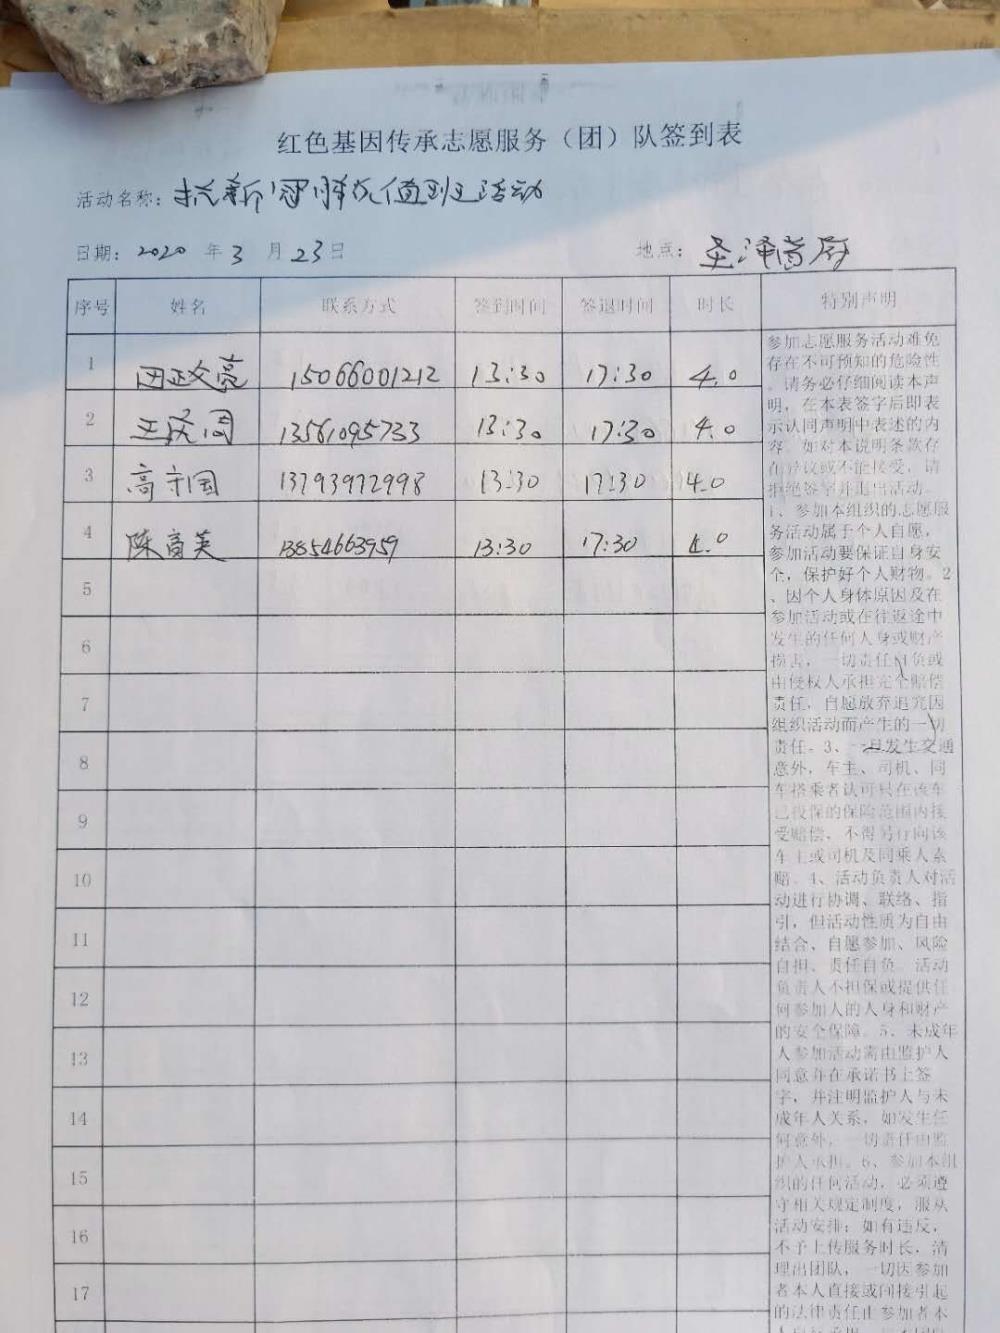 红色基因传承志愿服务（团）队签到表
活动名称：抗新冠肺炎值班活动
日期：2020 年 3 月 23日 地点：圣泽首府
序号 姓名 联系方式 签到时间 签退时间 时长 特别声明
1 田政亮 15066001212 13:30 17:30 4.0
2 王 周 13561095733 13:30 17:30 4.0
3 高守国 13793972998 13:30 17:30 4.0
4 陈育英 13854663959 13:30 17:30 4.0
5
6
7
8
9
10
11
12
13
14
15
16
17
参加志愿服务活动难免
存在不可预知的危险性
，请务必仔细阅读本声
明，在本表签字后即表
示认同声明中表述的内
容。如对本说明条款存
在异议或不能接受，请
拒绝签字并退出活动。
1、参加本组织的志愿服
务活动属于个人自愿，
参加活动要保证自身安
全，保护好个人财物。2
、因个人身体原因及在
参加活动或在往返途中
发生的任何人身或财产
损害，一切责任自负或
由侵权人承担完全赔偿
责任，自愿放弃追究因
组织活动而产生的一切
责任。3、一旦发生交通
意外，车主、司机、同
车搭乘者认可只在该车
已投保的保险范围内接
受赔偿，不得另行向该
车主或司机及同乘人索
赔。4、活动负责人对活
动进行协调、联络、指
引，但活动性质为自由
结合、自愿参加、风险
自担、责任自负。活动
负责人不担保或提供任
何参加人的人身和财产
的安全保障。5、未成年
人参加活动需由监护人
同意并在承诺书上签
字，并注明监护人与未
成年人关系，如发生任
何意外，一切责任由监
护人承担。6、参加本组
织的任何活动，必须遵
守相关规定制度，服从
活动安排；如有违反，
不予上传服务时长，清
理出团队，一切因参加
者本人直接或间接引起
的法律责任由参加者本